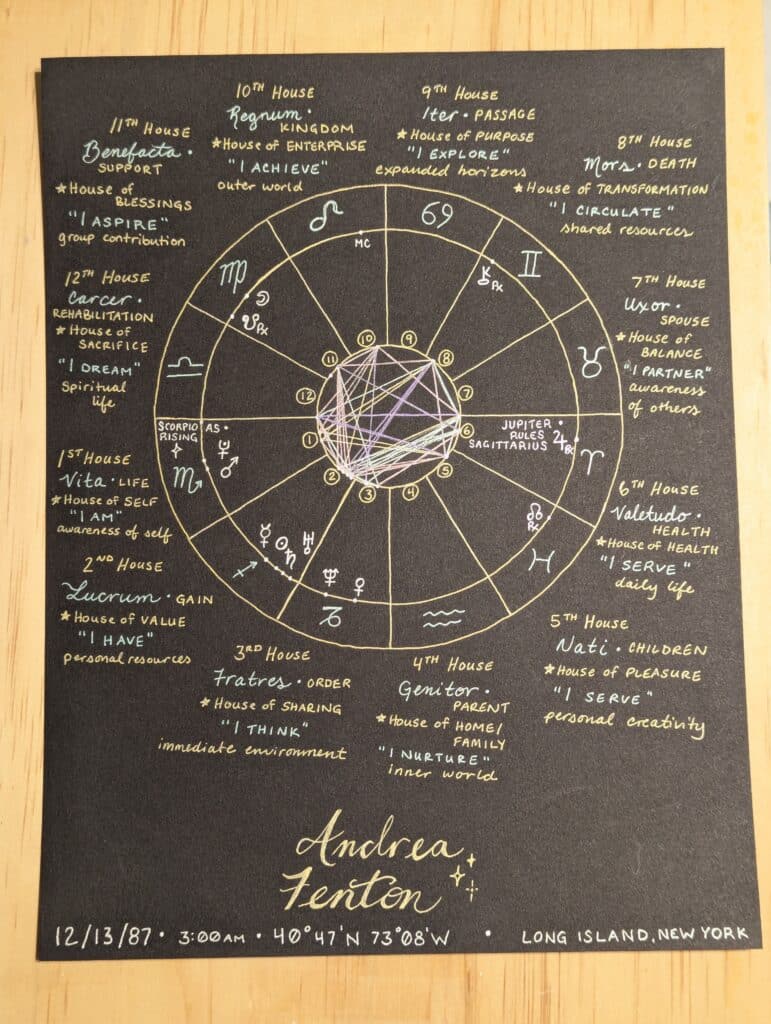 10TH HOUSE
Regnum •
KINGDOM
★ House of ENTERPRISE
"I ACHIEVE"
outer world
9TH HOUSE
Iter • PASSAGE
★ House of PURPOSE
"I EXPLORE"
expanded horizons
11TH HOUSE
Benefacta •
SUPPORT
★ House of
BLESSINGS
"I ASPIRE"
group contribution
8TH HOUSE
Mors • DEATH
★ House of TRANSFORMATION
"I CIRCULATE"
shared resources
12TH HOUSE
Carcer •
REHABILITATION
★ House of
SACRIFICE
"I DREAM"
Spiritual
life
7TH HOUSE
Uxor •
SPOUSE
★ House of
BALANCE
"I PARTNER"
awareness
of others
♌
♋
♍
♊
♎
♉
♏
♈
♐
♓
♑
♒
MC
⚷ ℞
☽
☋ ℞
10
9
11
8
12
7
1
6
2
5
3
4
SCORPIO
RISING
AS •
JUPITER •
RULES
SAGITTARIUS
♃ ℞
♀
♂
☊
℞
☿ ☉ ♄ ♅
♆ ♀
1ST HOUSE
Vita • LIFE
★ House of SELF
"I AM"
awareness of self
6TH HOUSE
Valetudo •
HEALTH
★ House of HEALTH
"I SERVE"
daily life
2ND HOUSE
Lucrum • GAIN
★ House of VALUE
"I HAVE"
personal resources
5TH HOUSE
Nati • CHILDREN
★ House of PLEASURE
"I SERVE"
personal creativity
3RD HOUSE
Fratres • ORDER
★ House of SHARING
"I THINK"
immediate environment
4TH HOUSE
Genitor •
PARENT
★ House of HOME/
FAMILY
"I NURTURE"
inner world
Andrea
Fenton
12/13/87 • 3:00AM • 40°47'N 73°08'W • LONG ISLAND, NEW YORK